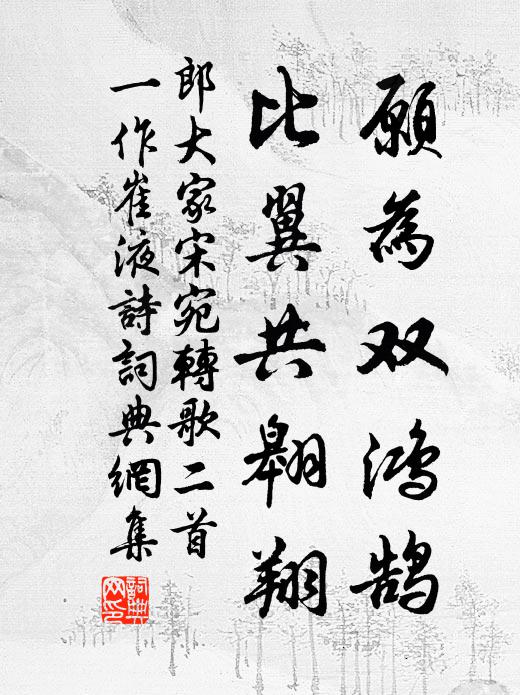 願為双鴻鵠
比翼共翱翔
郎大家宋宛轉歌二首
一作崔液詩詞典網集